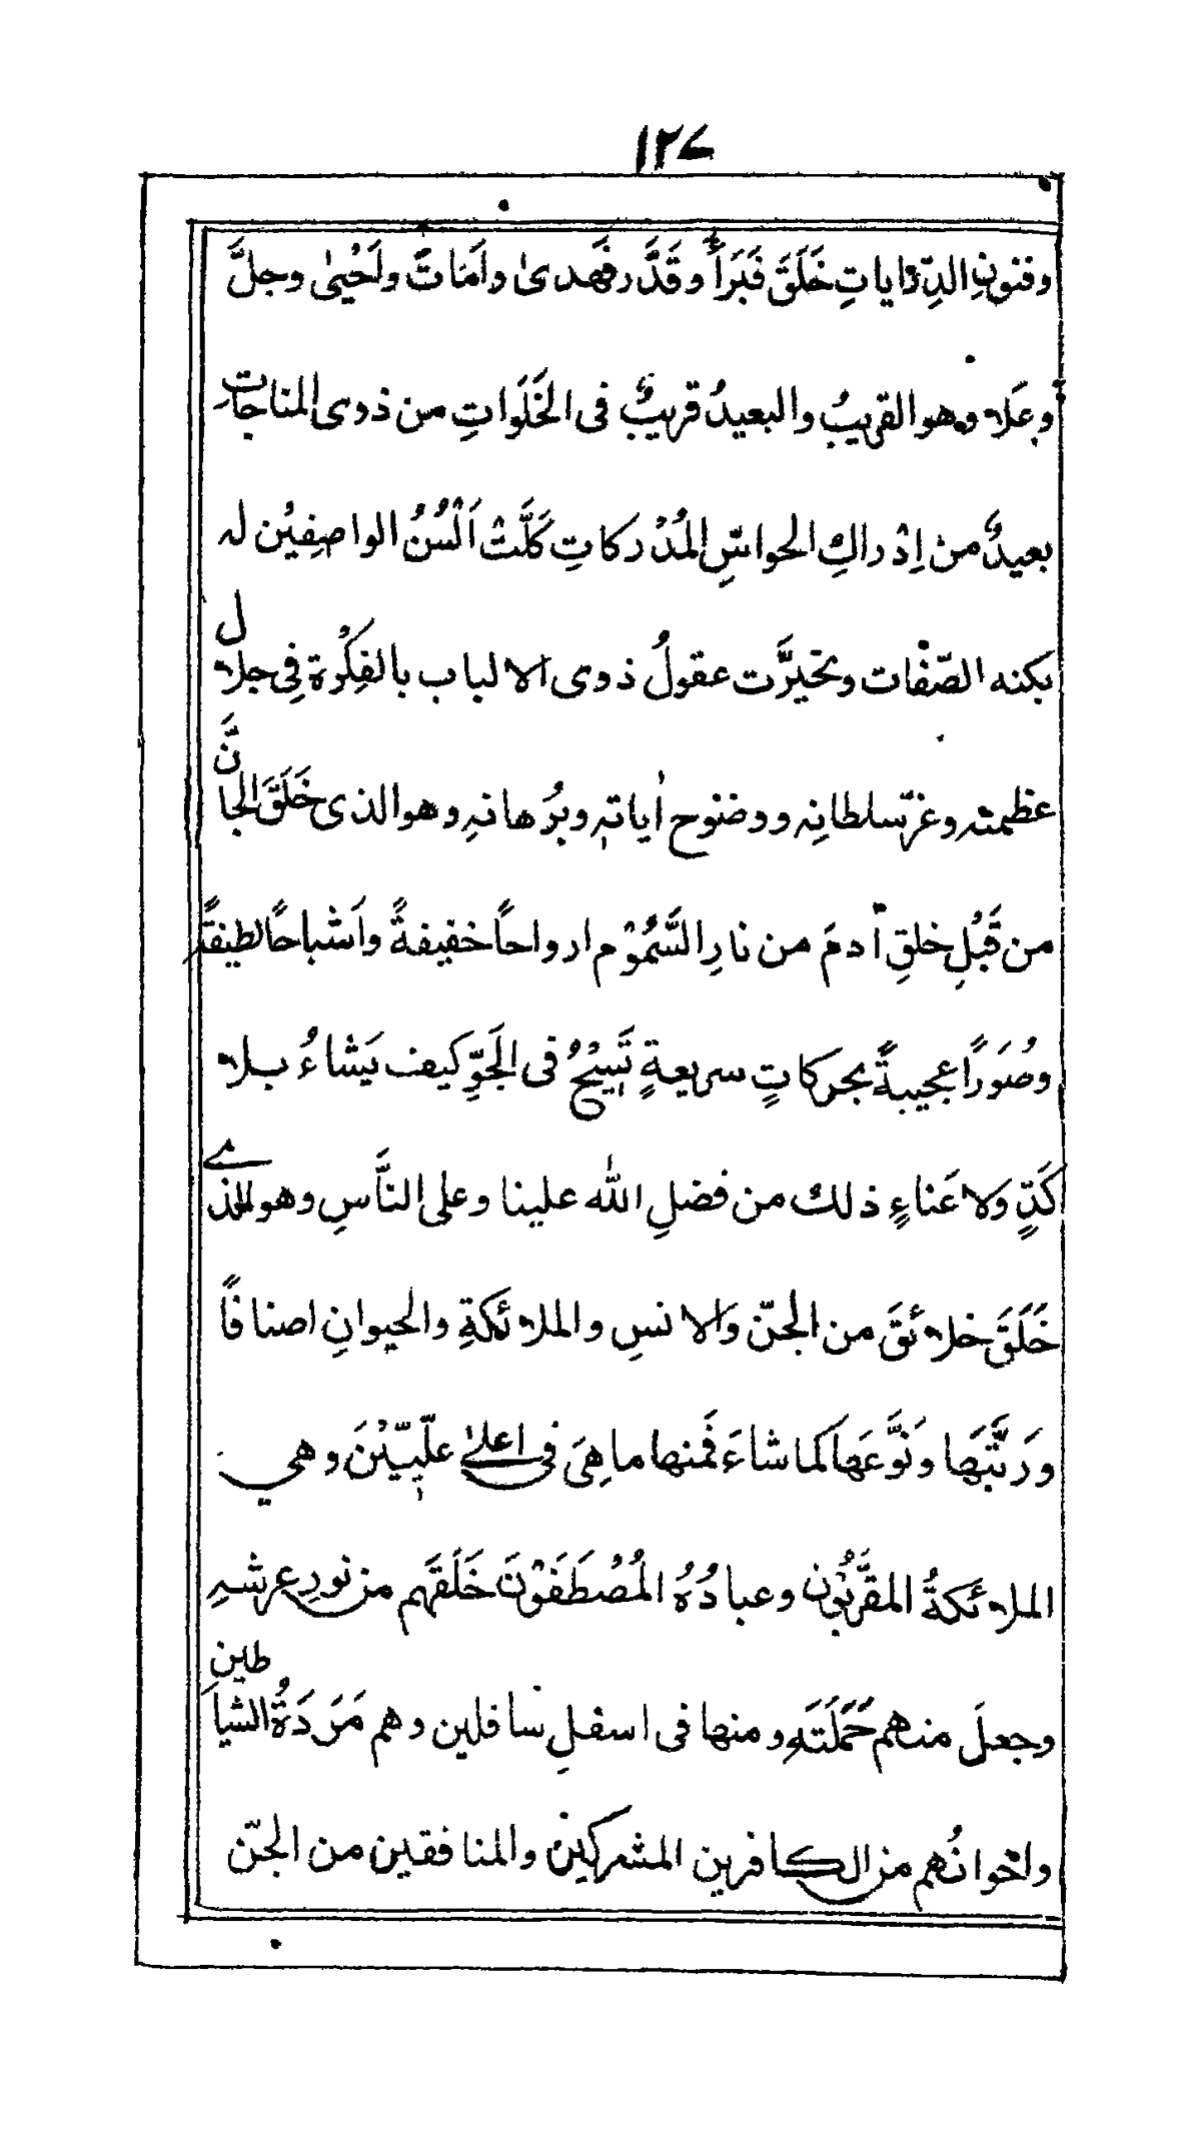 ١٢٧
وفنونِ الدِّرايات خَلَقَ فَبَرَأَ وقَدَّر فَهدىٰ واَمَاتَ واَحْيیٰ وجلَّ
وعَلا وهو القريبُ والبعيدُ قريبٌ فى الخَلَواتِ من ذوى المناجاتِ
بعيدٌ من اِدْراكِ الحواسِّ المُدْركاتِ كَلَّتْ اَلْسُنُ الواصِفِيْن له
بكنه الصِّفات وتحيَّرت عقولُ ذوى الالباب بالفِكْرة فِى جلال
عظمته وعزّ سلطانِه ووضوح اٰياتهٖ وبُرْهانهِ وهو الذى خَلَقَ الجانَّ
من قَبْلِ خلقِ آدمَ من نارِ السَّمُوْم ارواحاً خفيفةً واَشْباحًا لطيفةً
وصُوَرًا عجيبةً بحركاتٍ سريعةٍ تَسِيْحُ فى الجَوِّ كيف يَشاءُ بلا
كَدٍّ ولا عَناءٍ ذلك من فضلِ الله علينا وعلى النَّاسِ وهو الذى
خَلَقَ خلائقَ من الجنّ والانسِ والملائكةِ والحيوانِ اصنافًا
ورَتَّبَها ونَوَّعَها كما شاءَ فَمنها ما هِىَ فى اعلىٰ علّيّيْنَ وهي
الملائكةُ المقَرَّبُون وعبادُهُ المُصْطَفَوْنَ خَلَقَهم من نورِ عرشهِ
وجعلَ منهم حَمَلَتَه ومنها فى اسفلِ سافلين وهم مَرَدَةُ الشياطين
واخوانُهم من الكافرين المشركين والمنافقين من الجنّ